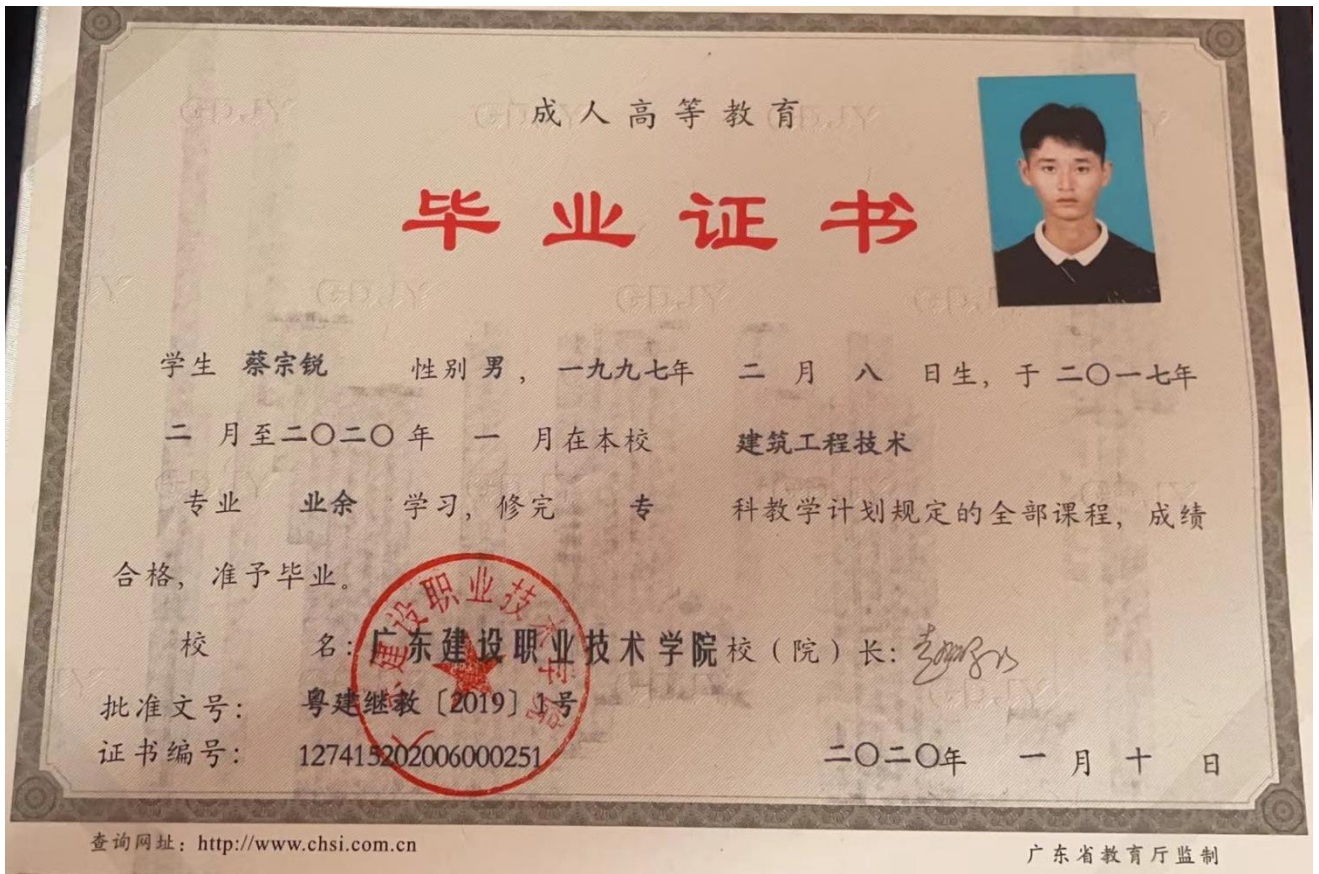 成人高等教育
毕业证书
学生 蔡宗锐 性别 男，一九九七年 二 月 八 日生，于 二〇一七年
二 月至二〇二〇 年 一 月在本校 建筑工程技术
专业 业余 学习，修完 专 科教学计划规定的全部课程，成绩
合格，准予毕业。
校 名：广东建设职业技术学院 校（院）长：
批准文号： 粤建继教〔2019〕1号
证书编号： 127415202006000251
二〇二〇年 一 月 十 日
广东建设职业技术学院
查询网址：http://www.chsi.com.cn
广东省教育厅监制
GDJY